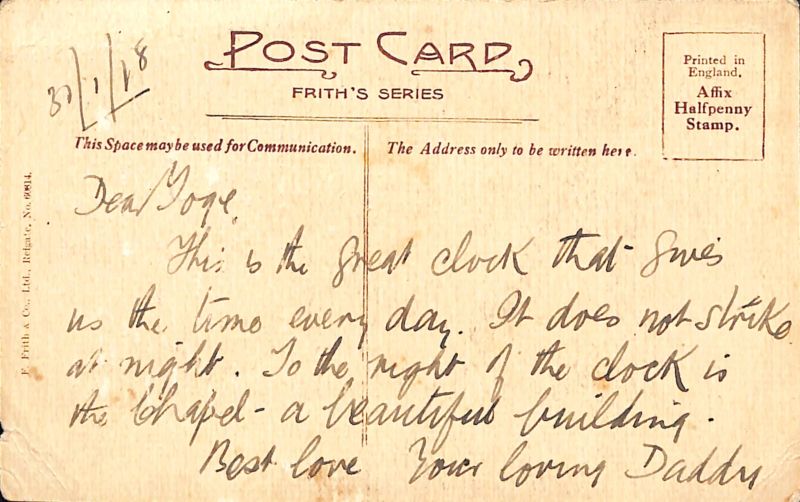 30/1/18
POST CARD
FRITH'S SERIES
Printed in
England.
Affix
Halfpenny
Stamp.
This Space may be used for Communication.
The Address only to be written here.
F. Frith & Co., Ltd., Reigate, No. 60814.
Dear
This is the great clock that gives
us the time every day. It does not strike
at night. To the right of the clock is
the Chapel - a beautiful building.
Best love Your loving Daddy